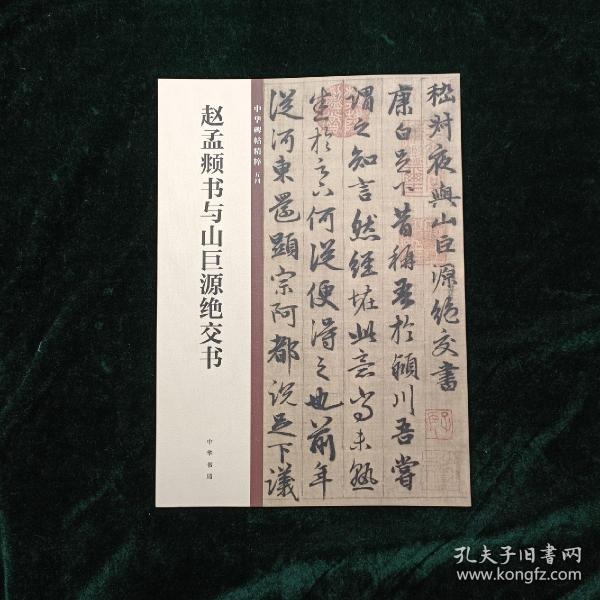 赵孟頫书与山巨源绝交书
中华书局
中华碑帖精粹 五四
嵇叔夜與山巨源絶交書
康白足下昔稱吾於潁川吾嘗
謂之知言然經怪此意尚未熟
悉於足下何從便得之也前年
從河東還顯宗阿都說足下議
孔夫子旧書网
www.kongfz.com